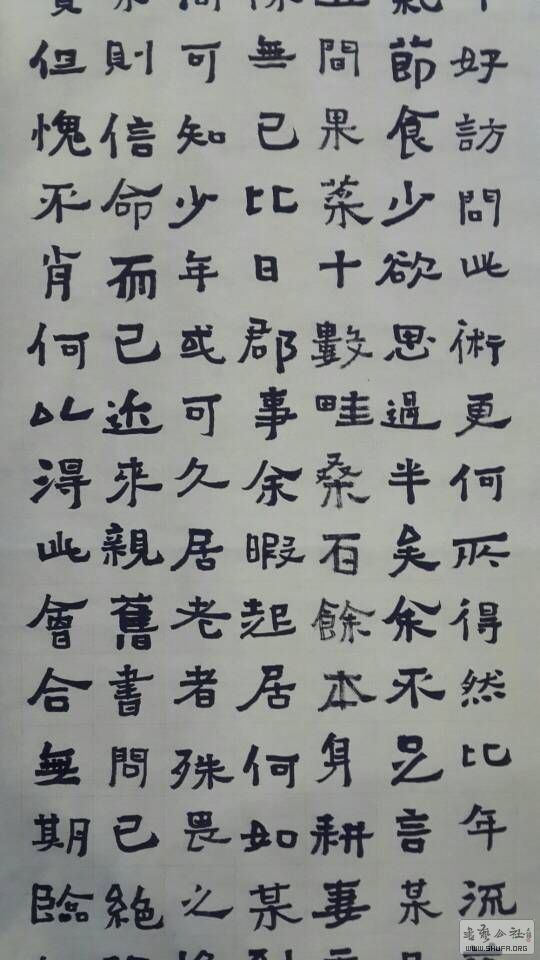 好訪問此術更何所得然比年流
氣節食少欲思過半矣余不足言某
間果菜十數畦桑百餘本身耕妻
無已比日郡事余暇起居何如某
可知少年或可久居老者殊畏之
則信命而已近來親舊書問已絕
但愧不肖何以得此會合無期臨
書藝公社
WWW.SHUFA.ORG